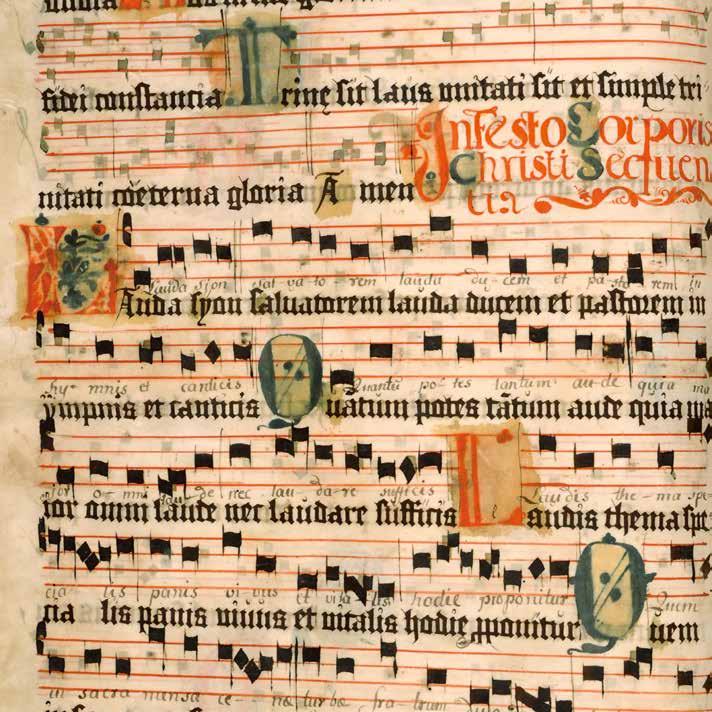 fidei constancia Trinę sit laus unitati sit et simple tri
In Festo Corporis
Christi Sequen
tia
nitati coęterna gloria Amen
Lauda sion sal va-to-rem lauda du-cem et pa-sto rem in
Lauda syon salvatorem lauda ducem et pastorem in
hy-mnis et canticis Quantū po-tes tantum au-de quia ma
ympnis et canticis Quātum potes tātum aude quia ma
ior o-mni lau-de nec lau-da-re sufficis Laudis the-ma spe-
ior omni laude nec laudare sufficis Laudis thema spe
cia lis panis vi-vus et vita lis hodie proponitur Quem
cia lis panis vivus et vitalis hodie ꝓponitur Quem
in sacra mensa ce-næ turbæ fra-trum